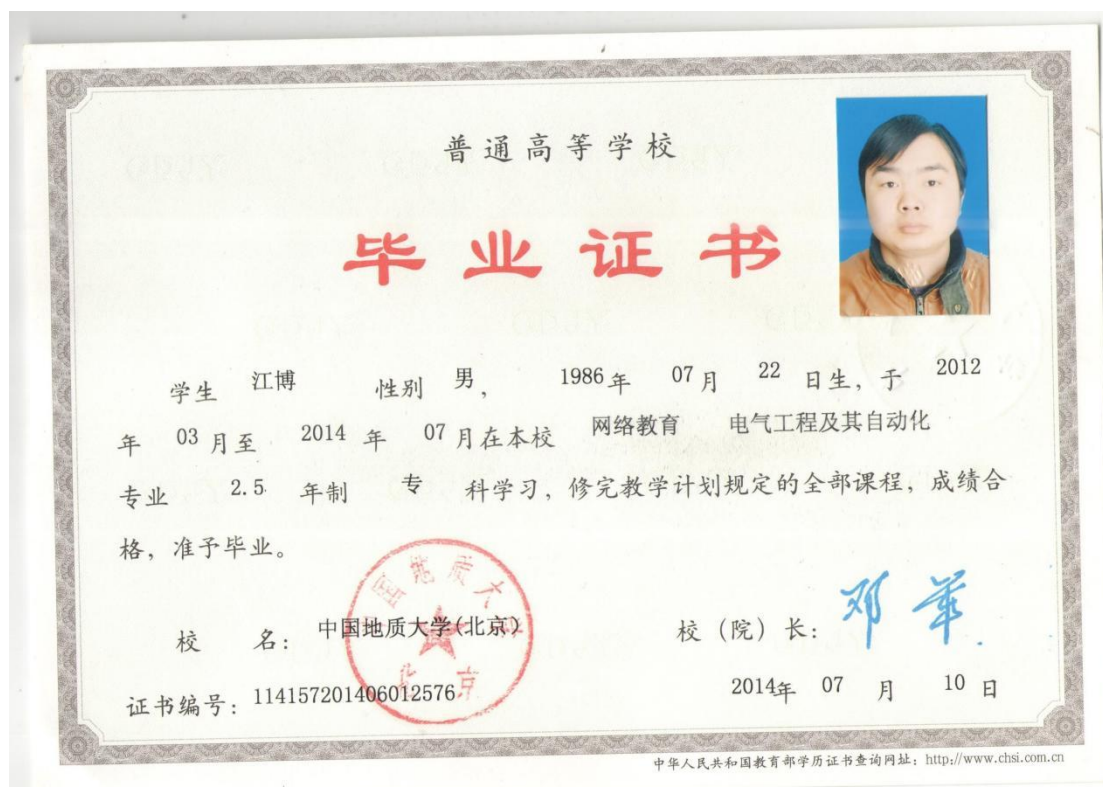 普通高等学校
毕业证书
学生 江博 性别 男， 1986年 07月 22 日生，于 2012
年 03月至 2014 年 07月在本校 网络教育 电气工程及其自动化
专业 2.5 年制 专 科学习，修完教学计划规定的全部课程，成绩合
格，准予毕业。
中国地质大学
北京
校 名：中国地质大学(北京)
校（院）长：邓军
证书编号：114157201406012576
2014年 07 月 10 日
中华人民共和国教育部学历证书查询网址：http://www.chsi.com.cn